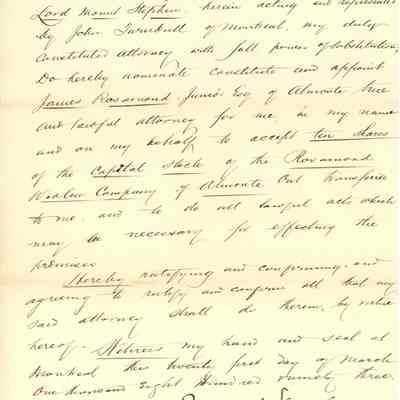 Lord Mount Stephen, herein acting and represented
by John Turnbull of Montreal, my duly
Constituted attorney with full power of substitution,
Do hereby nominate constitute and appoint
James Rosamond Junior Esq of Almonte true
and lawful attorney for me in my name
and on my behalf to accept ten shares
of the Capital Stock of the Rosamond
Woolen Company of Almonte Ont transferred
to me, and to do all lawful acts which
may be necessary for effecting the
premises
Hereby ratifying and confirming, and
agreeing to ratify and confirm all that my
said attorney shall do therein, by virtue
hereof. Witness my hand and seal at
Montreal this twenty first day of March
One thousand Eight Hundred ninety three.